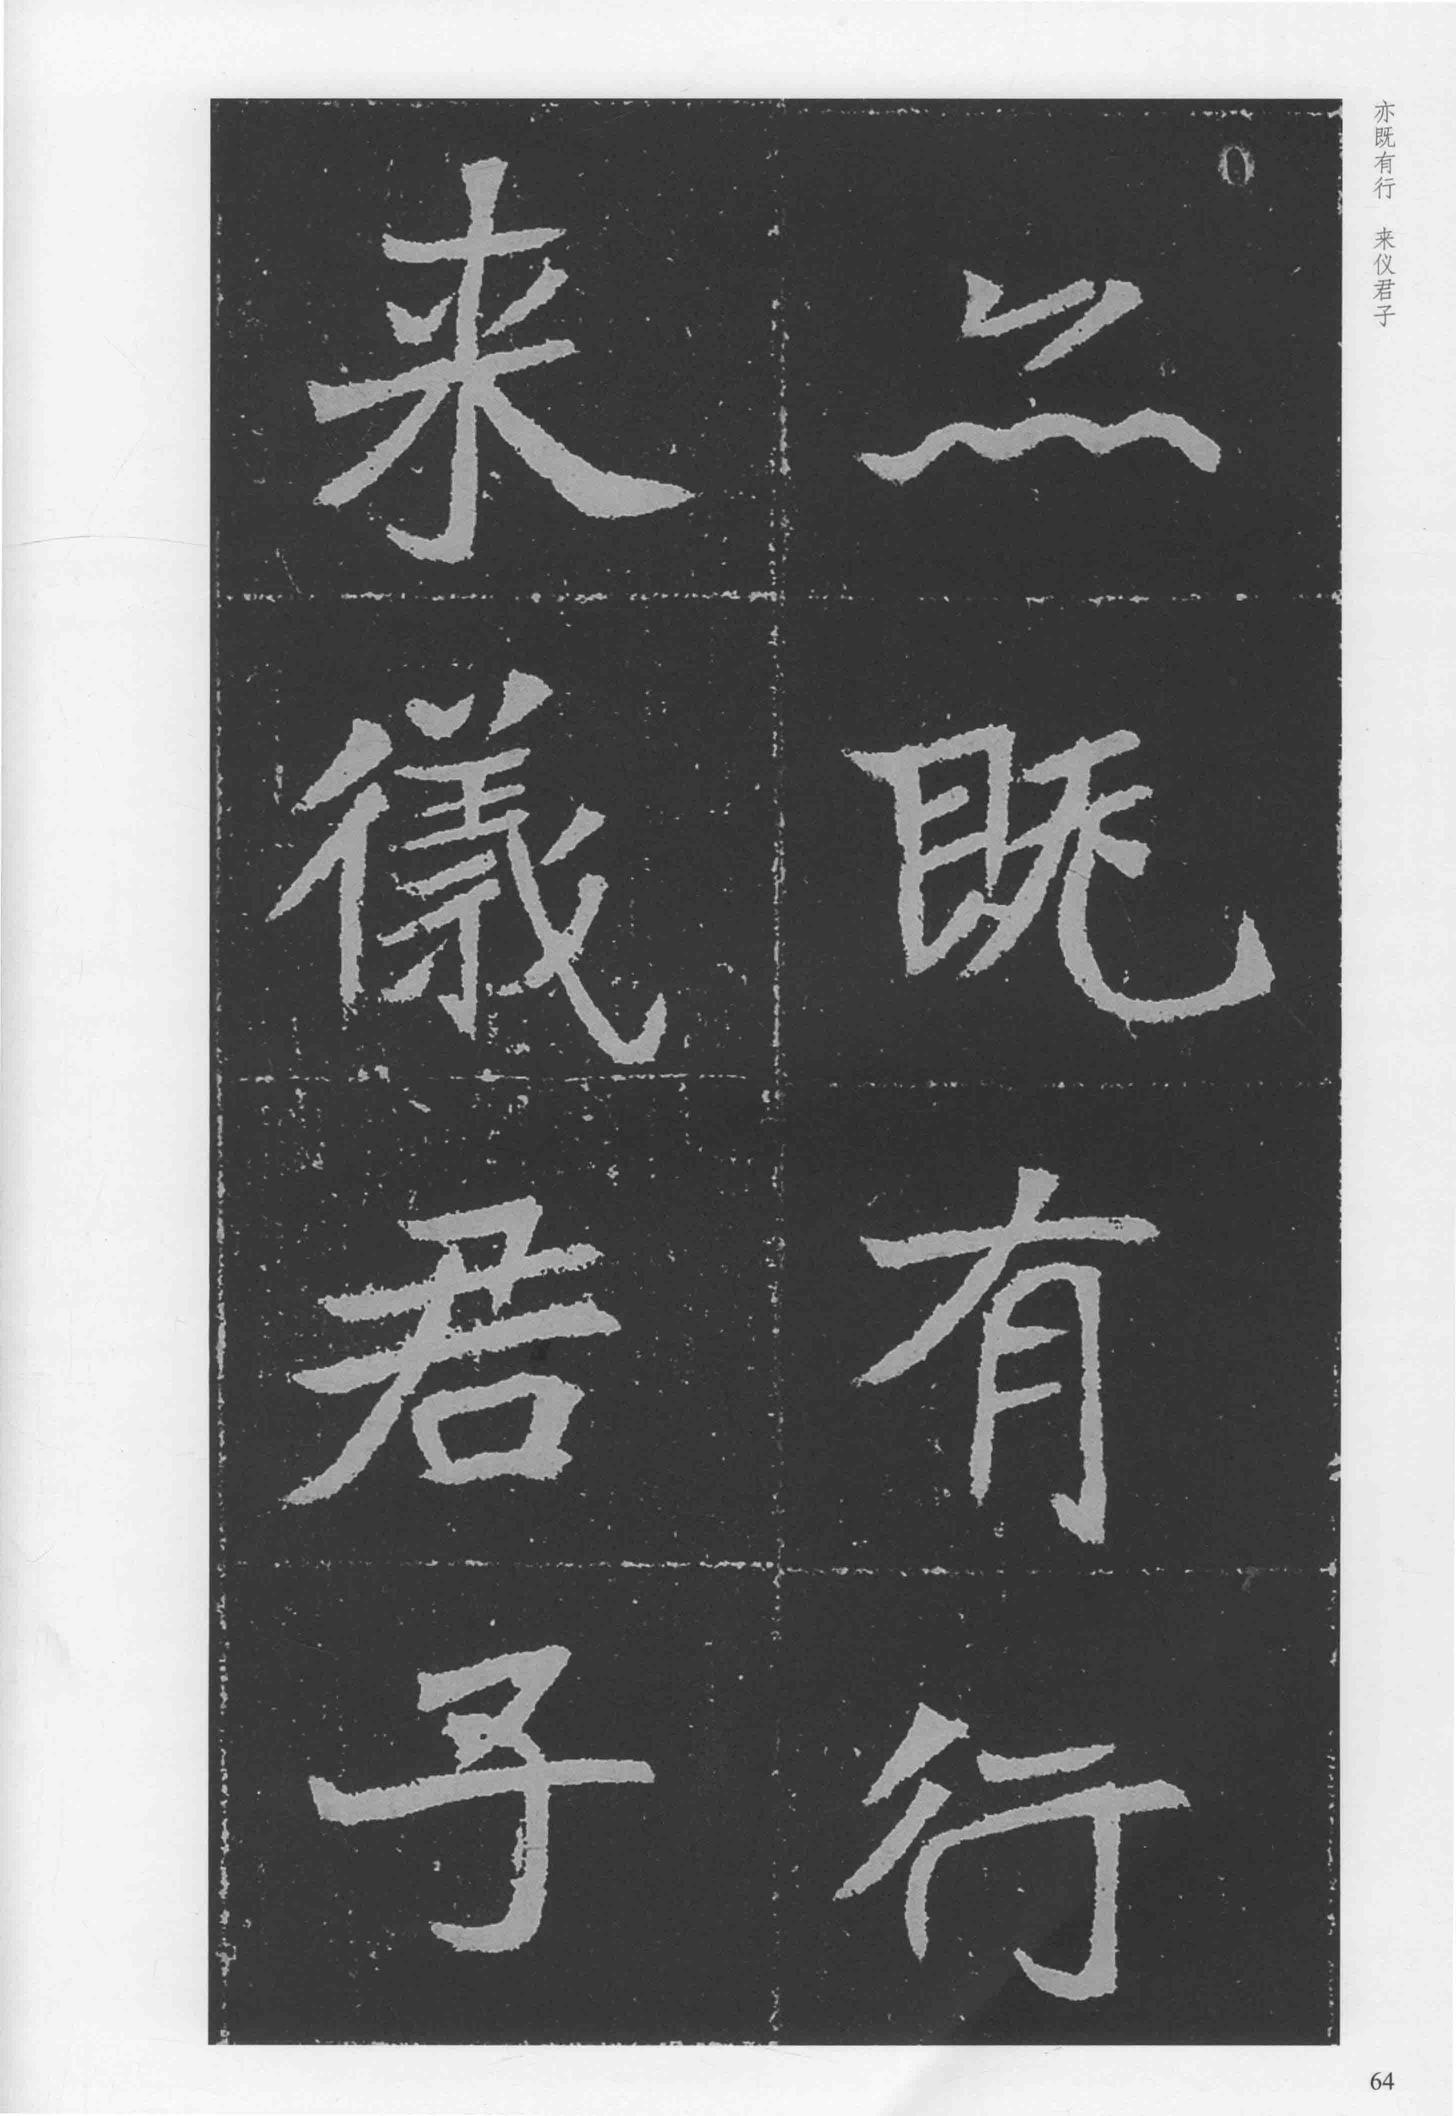 亦既有行　来仪君子
亦既有行
来儀君子
64